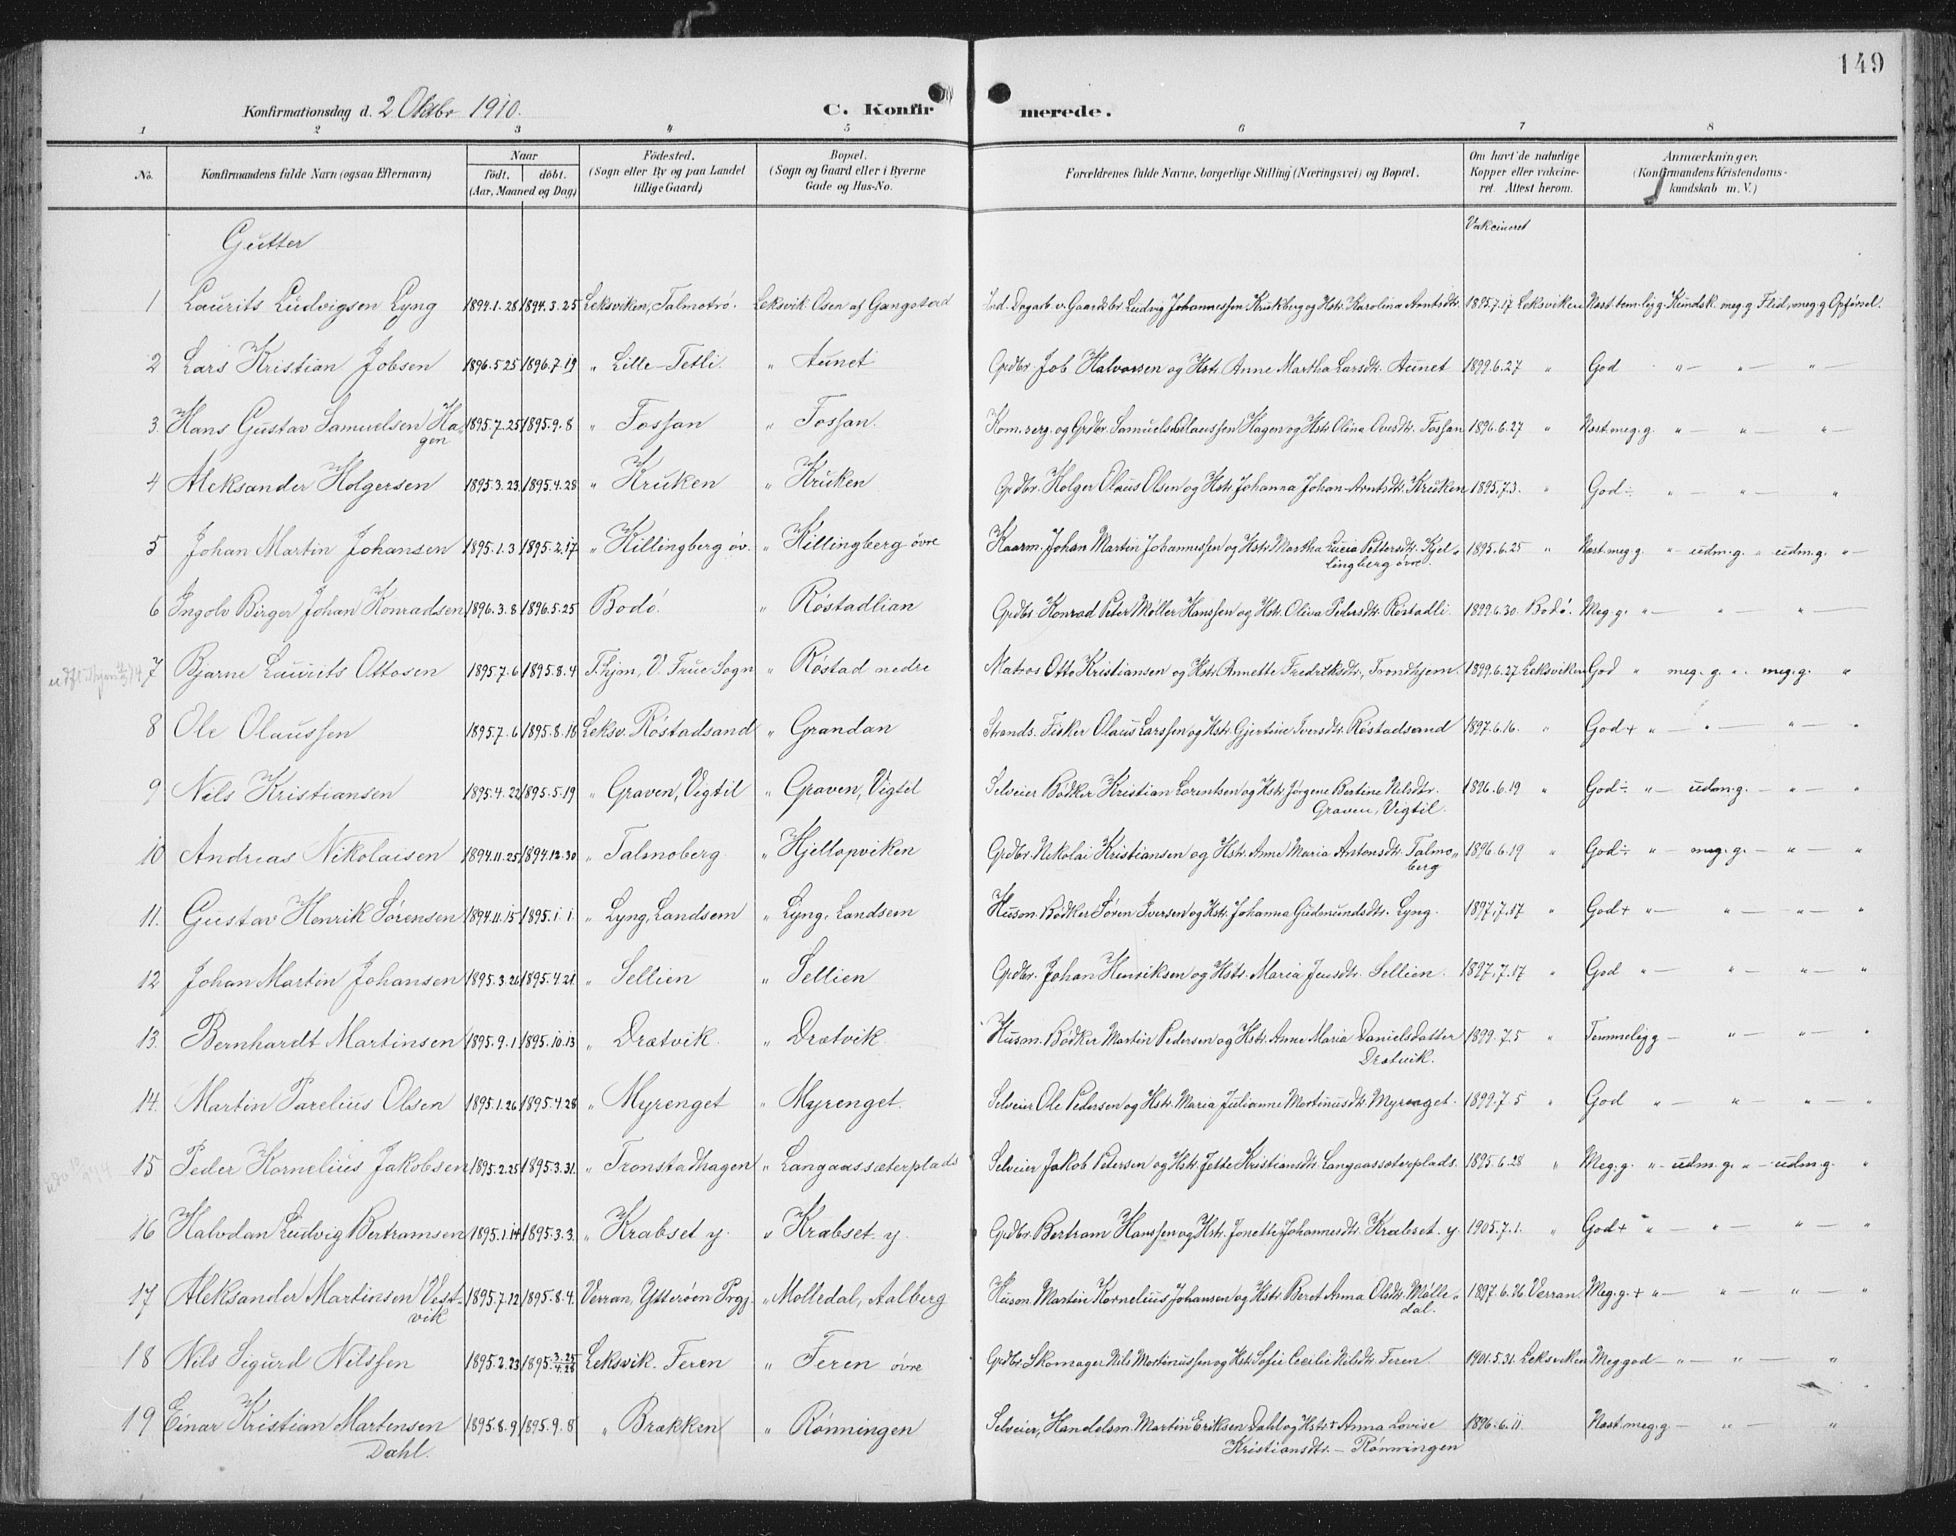 149
Konfirmationsdag d. 2 Oktbr 1910.
C. Konfirmerede.
1 2 3 4 5 6 7 8
No. Konfirmandens fulde Navn (ogsaa Efternavn) Naar født. døbt. (Aar, Maaned og Dag) Fødested. (Sogn eller By og paa Landet tillige Gaard) Bopæl. (Sogn og Gaard eller i Byerne Gade og Hus-No. Forældrenes fulde Navne, borgerlige Stilling (Næringsvei) og Bopæl. Om havt de naturlige Kopper eller vakcineret. Attest herom. Anmærkninger. (Konfirmandens Kristendomskundskab m. V.)
Gutter Vakcineret
1 Laurits Ludvigsen Lyng 1894.1.28 1894.3.25 Leksviken, Talmotrø. Leksvik Osen af Gangstad Ind. Dagarb. v. Gaardsbr. Ludvig Johannessen Krukberg og Hstr. Karolina Arntsdtr. 1895.7.17 Leksviken Næst. tem. lig g. Kundsk. meg. g Flid, meg. g Opførsel.
2 Lars Kristian Jobsen 1896.5.25 1896.7.19 " Lille-Tetli. " Aunet Grdbr. Job Halvorsen og Hstr. Anne Martha Larsdtr. Aunet 1899.6.27 " God " — " — " —
3. Hans Gustav Samuelsen Hagen 1895.7.25 1895.9.8 " Fossan " Fossan. Kom. serg. og Grdbr. Samuel Olaussen Hagen og Hstr. Olina Ovesdtr. Fossan 1896.6.27 " Næst. meg. g. " — " — " —
4 Aleksander Holgersen 1895.3.23 1895.4.28 " Kruken " Kruken Grdbr. Holger Olaus Olsen og Hstr. Johanna Johan-Arntsdtr. Kruken 1895.7.3. " God ÷ " — " — "
5 Johan Martin Johansen 1895.1.3 1895.2.17 " Killingberg øv. " Killingberg øvre Kaarm. Johan Martin Johannessen og Hstr. Martha Lucia Pettersdtr. Kjellingberg øvre. 1895.6.25 " Næst. meg. g. " — udm. g. " udm. g. " —
6 Ingolv Birger Johan Konradsen 1896.3.8 1896.5.25 Bodø. " Røstadlian Grdbr. Konrad Peter Møller Hanssen og Hstr. Oliva Pedersdtr. Røstadli. 1899.6.30. Bodø. Meg. g. " — " — " —
7 Bjarne Laurits Ottosen 1895.7.6 1895.8.4 T.hjem, V. Frue Sogn " Røstad nedre Matros Otto Kristiansen og Hstr. Annette Fredriksdtr., Trondhjem. 1899.6.27 Leksviken God " meg. g. " meg. g. "
8 Ole Olaussen 1895.7.6 1895.8.18 Leksv. Røstadsand " Grandan Strands. Fisker Olaus Larssen og Hstr. Gjertine Iversdtr. Røstadsand 1897.6.16. " God + " — " — " — "
9 Nils Kristiansen 1895.4.22 1895.5.19 " Graven, Vigtil " Graven, Vigtil Selveier Bødker Kristian Lorentsen og Hstr. Jørgene Bertine Nelsdtr. Graven, Vigtil. 1896.6.19 " God ÷ " — udm. g. — " — "
10 Andreas Nikolaisen 1894.11.25 1894.12.30 " Talmoberg " Hjellopviken Grdbr. Nikolai Kristiansen og Hstr. Anne Maria Antonsdtr. Talmoberg 1896.6.19 " God ÷ " — meg. g. — " — "
11. Gustav Henrik Sørensen 1894.11.15 1895.1.1 " Lyng, Landsem " Lyng, Landsem Husm. Bødker Søren Iversen og Hstr. Johanna Gudmundsdtr. Lyng. 1897.7.17 " God + " — " — " — "
12 Johan Martin Johansen 1895.3.26 1895.4.21 " Sellien " Sellien Grdbr. Johan Henriksen og Hstr. Maria Jensdtr. Sellien. 1897.7.17 " God " — " — " — "
13. Bernhardt Martinsen 1895.9.1 1895.10.13 " Drætvik. " Drætvik Husm. Bødker Martin Pedersen og Hstr. Anne Maria Danielsdatter Drætvik. 1899.7.5 " Temmelig g — " — " — "
14. Martin Parelius Olsen 1895.1.26 1895.4.28 " Myrenget " Myrenget. Selveier Ole Pedersen og Hstr. Maria Julianne Martinusdtr. Myrenget. 1899.7.5 " God " — " — " — "
15 Peder Kornelius Jakobsen 1895.2.25 1895.3.31. " Tronstadhagen " Langaassæterplads Selveier Jakob Petersen og Hstr. Jette Kristiansdtr. Langaassæterplads. 1895.6.28 " Meg. g. " — udm. g. " — udm. g. "
16 Halvdan Ludvig Bertramsen 1895.1.14 1895.3.3. " Krabset y. " Krabset. y. Grdbr. Bertram Hanssen og Hstr. Jonette Johannesdtr. Krabset. y. 1905.7.1. " God + " — " — " — "
17 Aleksander Martinsen Vestvik 1895.7.12 1895.8.4. Verran, Ytterøen Prgj. " Molledal, Aalberg Husm. Martin Kornelius Johansen og Hstr. Beret Anna Olsdtr. Mølledal. 1897.6.26 Verran. Meg. g. + " — " — " — "
18 Nils Sigurd Nilssen 1895.2.23 1895. 3.25 4.28 Leksvik. Feren " Feren øvre Grdbr. Skomager Nils Martinussen og Hstr. Sofie Cecilie Nilsdtr. Feren. 1901.5.31. Leksviken Meg god — " — " — "
19 Einar Kristian Martensen Dahl. 1895.8.9 1895.9.8 " Brækken " Rønningen Selveier, Handelsm. Martin Eriksen Dahl og Hstr + Anna Lovise Kristiansdtr. — Rønningen 1896.6.11. Næst. meg. g — " "